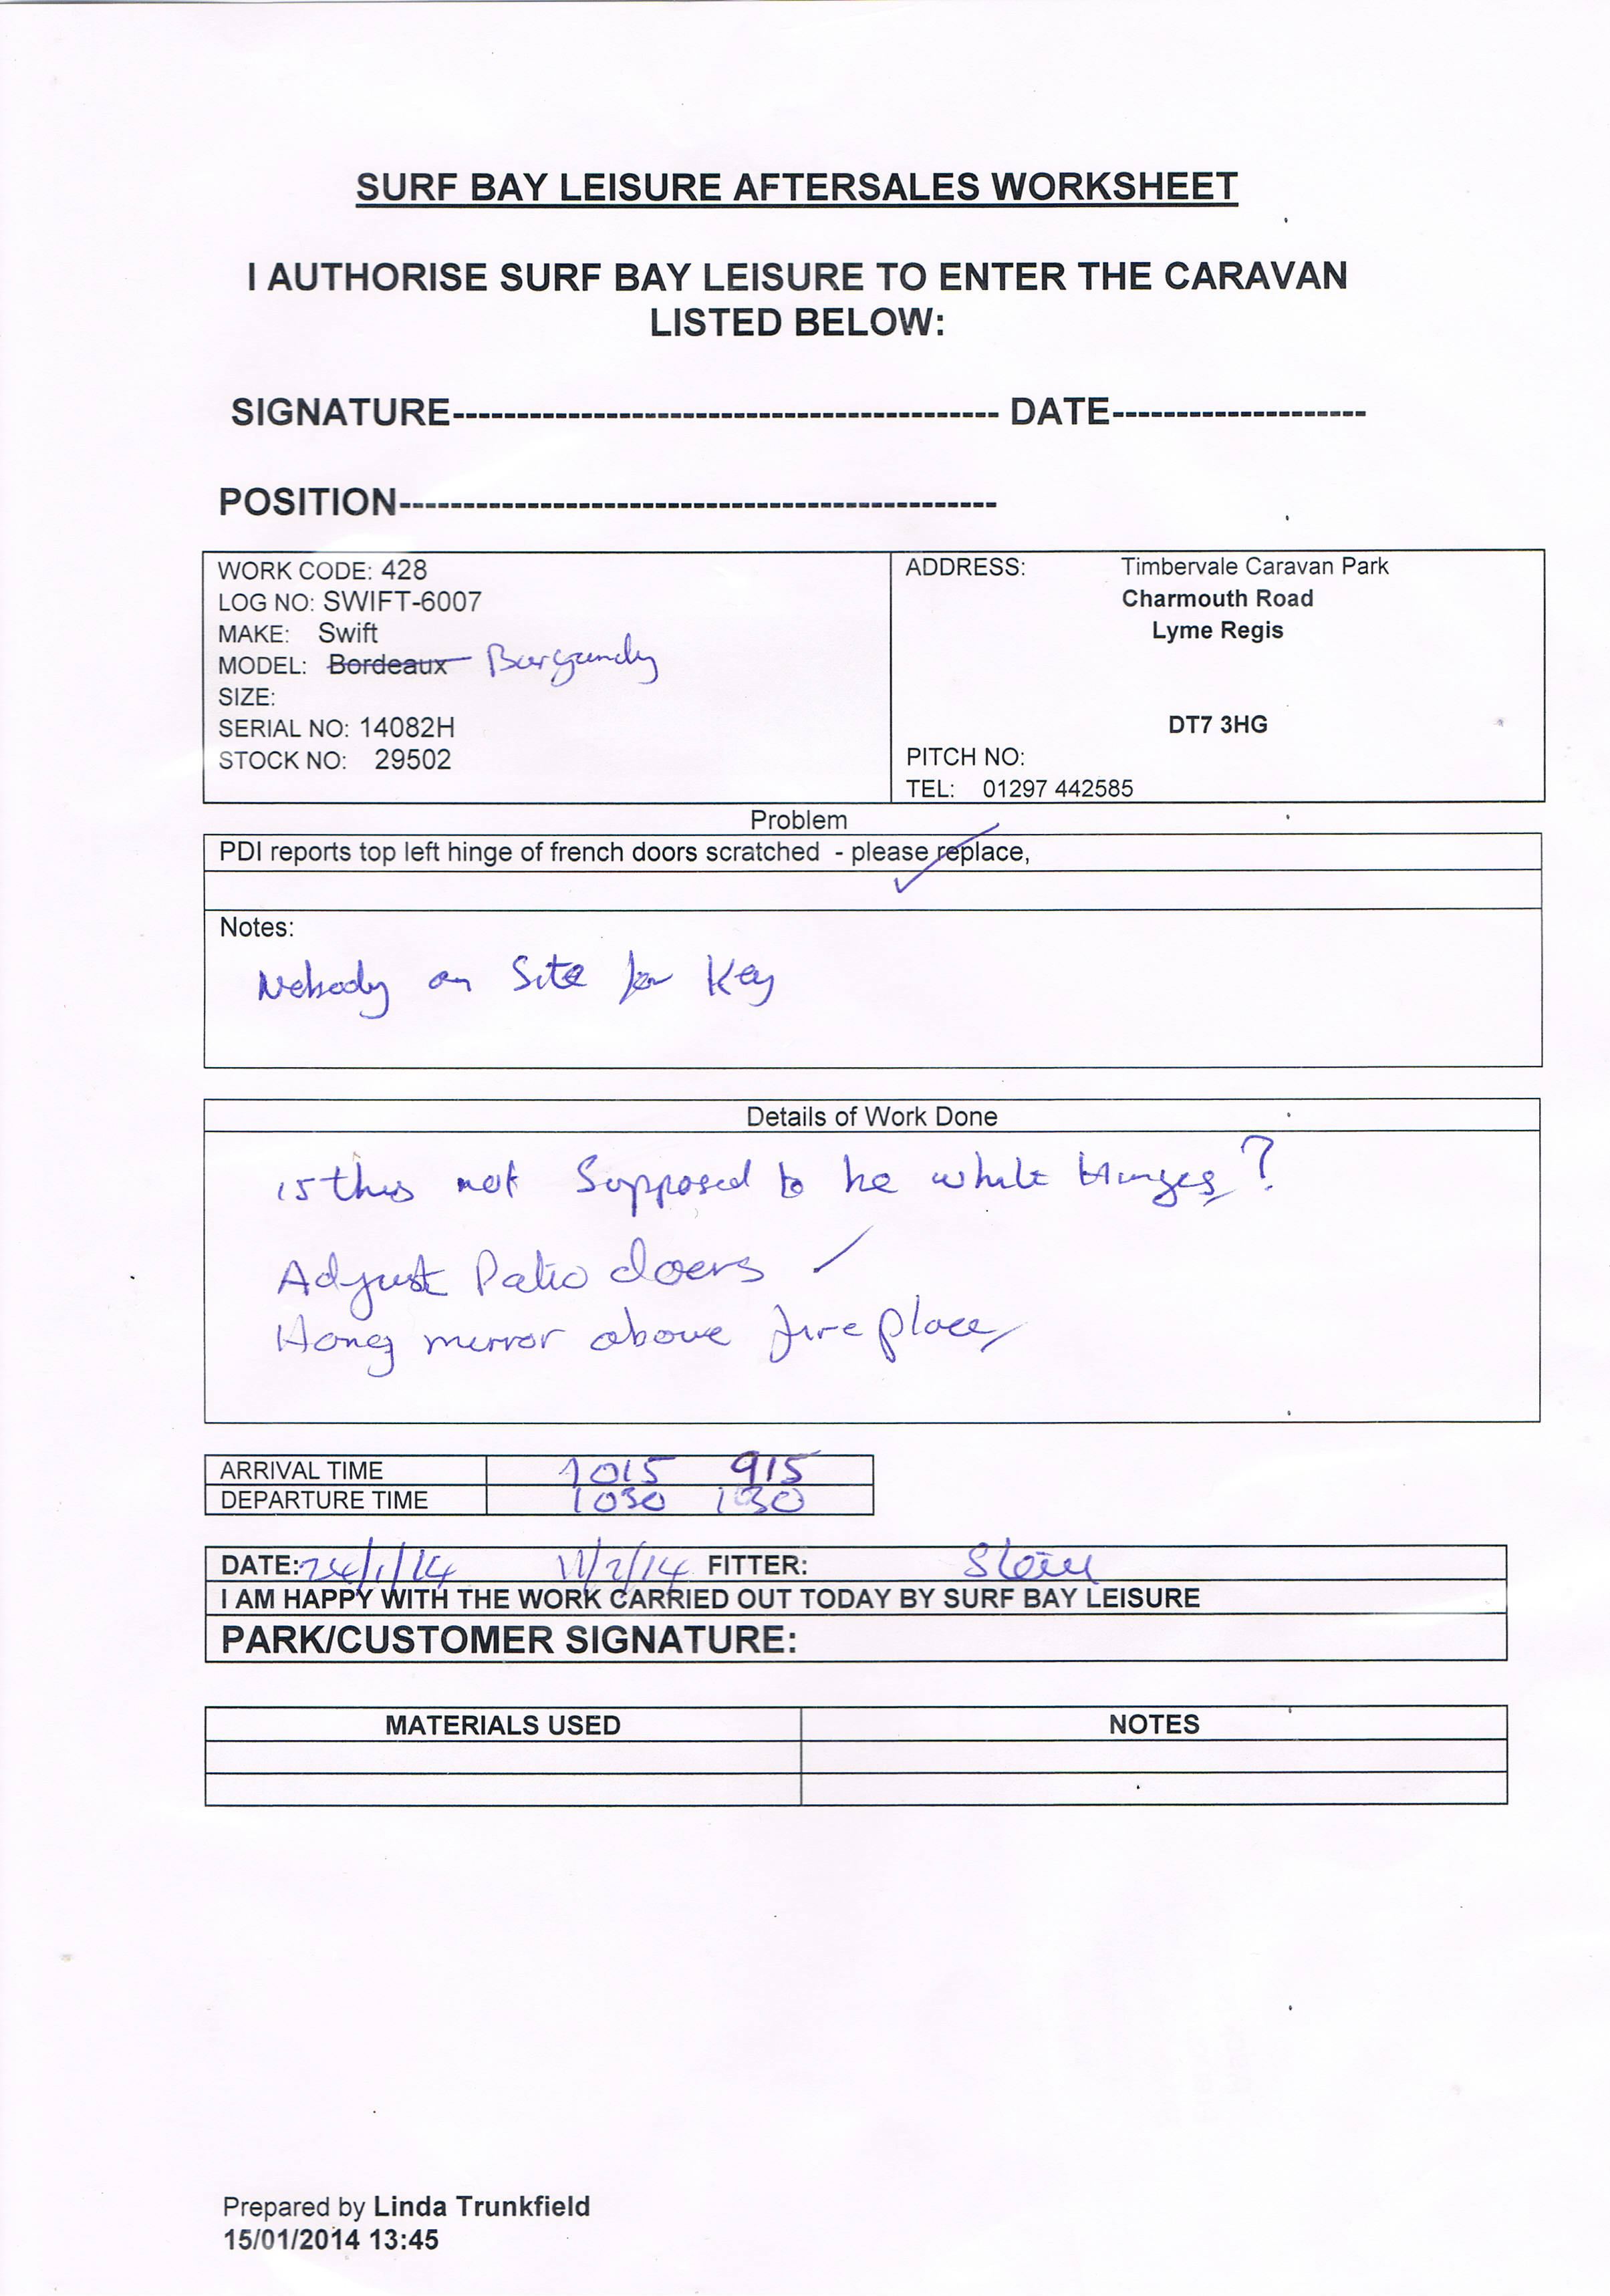 SURF BAY LEISURE AFTERSALES WORKSHEET
I AUTHORISE SURF BAY LEISURE TO ENTER THE CARAVAN
LISTED BELOW:
SIGNATURE------------------------------------------- DATE--------------------
POSITION-----------------------------------------------
WORK CODE: 428
LOG NO: SWIFT-6007
MAKE: Swift
MODEL: Bordeaux Burgundy
SIZE:
SERIAL NO: 14082H
STOCK NO: 29502
ADDRESS: Timbervale Caravan Park
Charmouth Road
Lyme Regis
DT7 3HG
PITCH NO:
TEL: 01297 442585
Problem
PDI reports top left hinge of french doors scratched - please replace,
Notes:
Nobody on Site for Key
Details of Work Done
is this not Supposed to be white Hinges?
Adjust Patio doors
Hang mirror above fire place
ARRIVAL TIME 1015 915
DEPARTURE TIME 1030 130
DATE: 24/1/14 11/2/14 FITTER:
I AM HAPPY WITH THE WORK CARRIED OUT TODAY BY SURF BAY LEISURE
PARK/CUSTOMER SIGNATURE:
MATERIALS USED NOTES
Prepared by Linda Trunkfield
15/01/2014 13:45